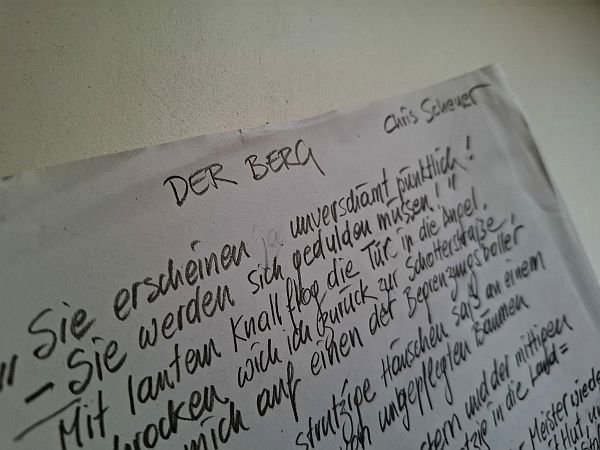 DER BERG
Chris Scheuer
"Sie erscheinen ja unverschämt pünktlich!
– Sie werden sich gedulden müssen!"
Mit lautem Knall flog die Tür in die Angel.
wich ich zurück zur Schotterstraße,
mich auf einen der Begrenzungspoller
strutzige Häuschen saß an einem
von ungepflegten Bäumen
und der mittigen
in die Land=
Meister